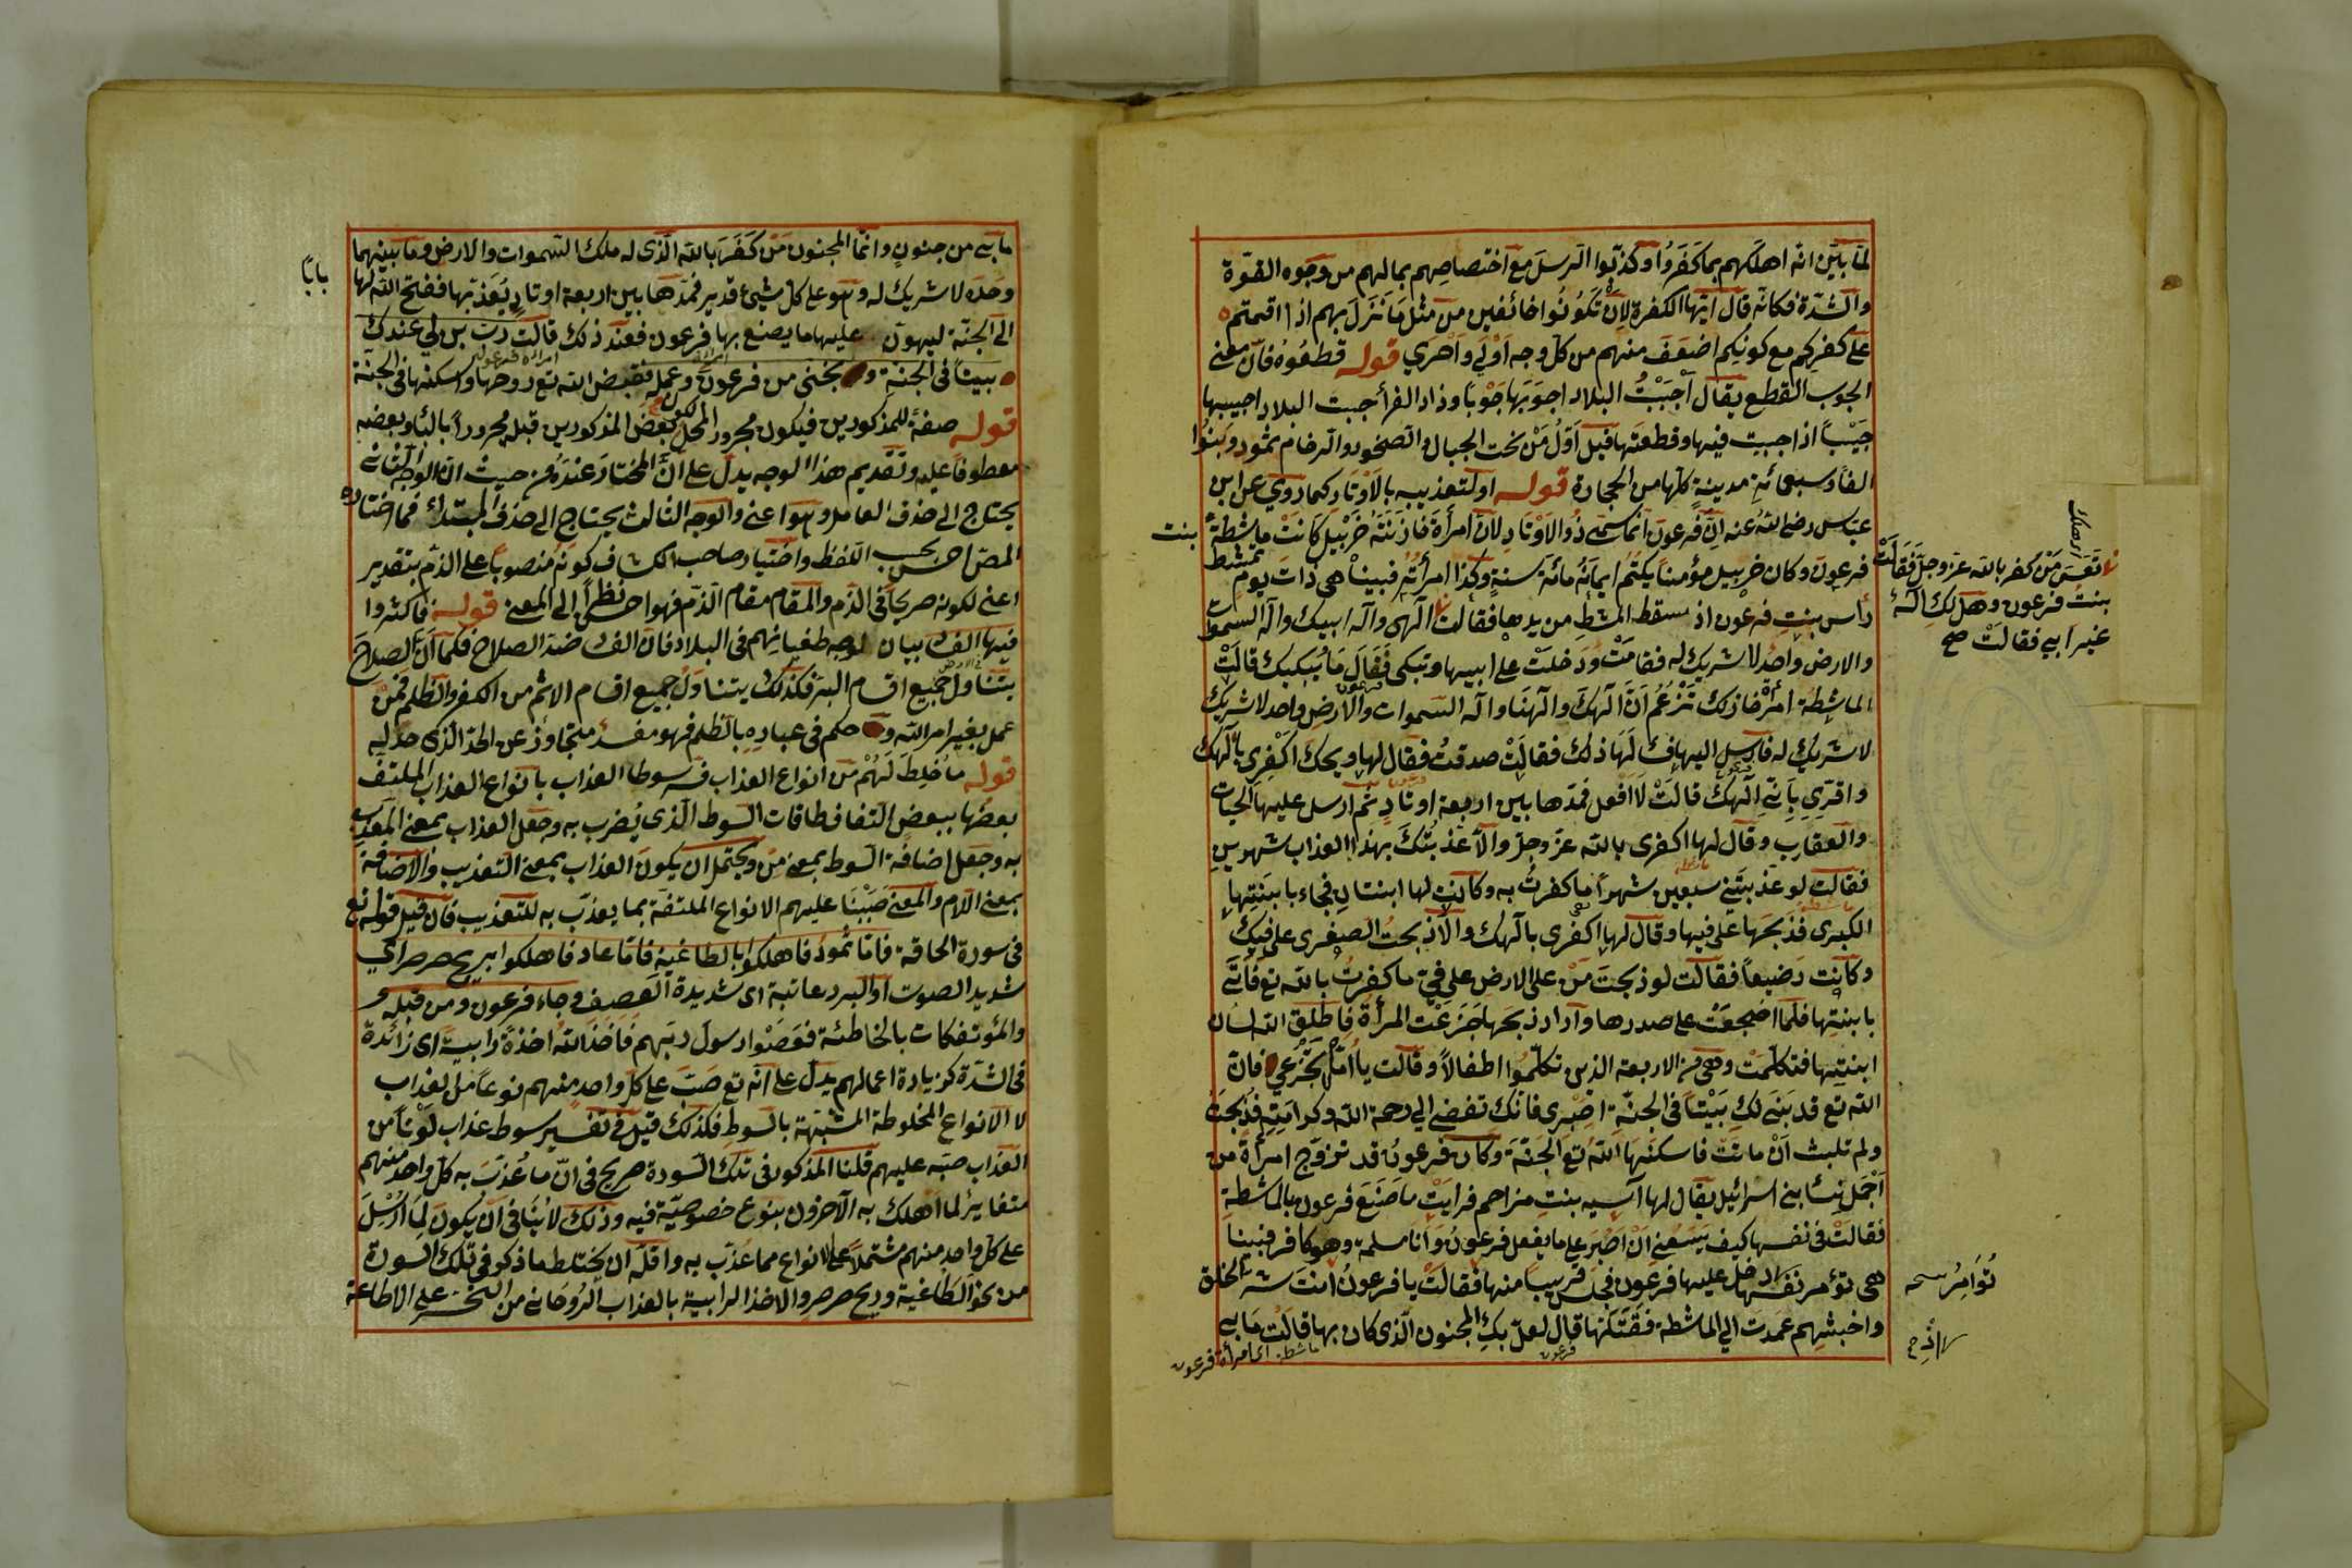 لما بين انه اهلكهم بما كفروا وكذبوا الرسل مع اختصاصهم بمالهم من وجوه القوة
والشدة فكانه قال ايها الكفرة لان تكونوا خائفين من مثل ما نزل بهم اذا اقمتم
على كفركم مع كونكم اضعف منهم من كل وجه اولى واحرى قوله قطعوه فان معنى
الجوب القطع يقال اجبت البلاد اجوبها جوبا وزاد الفرأ جبت البلاد اجيبها
جيبا اذا جبت فيها وقطعتها قيل اول من نحت الجبال والصخور والرخام ثمود وبنوا
الفا وسبعمائة مدينة كلها من الحجارة قوله او لتعذيبه بالاوتاد كما روي عن ابن
عباس رضى الله عنه ان فرعون انما سمى ذو الاوتاد لان امرأة خازنه خربيل كانت ماشطة بنت
فرعون وكان خربيل مؤمنا يكتم ايمانه مائة سنة وكذا امرأته فبينا هى ذات يوم تمشط
رأس بنت فرعون اذ سقط المشط من يدها فقالت
تعس من كفر بالله عز وجل فقالت
بنت فرعون وهل لك اله
غير ابي فقالت صح
الهى واله ابيك واله السموات
والارض واحد لا شريك له فقامت ودخلت على ابيها وتبكى فقال ما يبكيك قالت
الماشطة امرأة خازنك تزعم ان الهك والهنا واله السموات والارض واحد لا شريك
لا شريك له فارسل اليها فسألها ذلك فقالت صدقت فقال لها ويحك اكفرى بالهك
واقرى بانى الهك قالت لا افعل فمدها بين اربعة اوتاد ثم ارسل عليها الحيات
والعقارب وقال لها اكفرى بالله عز وجل والا عذبتك بهذا العذاب شهرين
فقالت لو عذبتنى سبعين شهرا ما كفرت به وكانت لها ابنتان فجاء بابنتها
الكبرى فذبحها على فيها وقال لها اكفرى بالهك والا ذبحت الصغرى على فيك
وكانت رضيعا فقالت لو ذبحت من على الارض على فى ما كفرت بالله تع فاتى
بابنتها فلما اضجعت على صدرها وارادذبحها جزعت المرأة فاطلق الله لسان
ابنتها فتكلمت وهى من الاربعة الذين تكلموا اطفالا وقالت يا اماه لا تجزعي فان
الله تع قد بنى لك بيتا فى الجنة اصبرى فانك تفضى الى رحمة الله وكرامته فذبحت
ولم تلبث ان ماتت فاسكنها الله تع الجنة وكان فرعون قد تزوج امرأة من
اجمل نساء بنى اسرائيل يقال لها آسيه بنت مزاحم فرايت ما صنع فرعون بالماشطة
فقالت فى نفسها كيف يسعنى ان اصبر على ما يفعل فرعون وانا مسلمة وهو كافر فبينا
هى تؤامر نفسها اذ دخل عليها فرعون فجلس قريبا منها فقالت يا فرعون انت شر الخلق
واخبثهم عمدت الى الماشطة فقتلتها قال لعل بك المجنون الذى كان بها قالت ما بى
ما بى من جنون وانما المجنون من كفر بالله الذى له ملك السموات والارض وما بينهما
وحده لا شريك له وهو على كل شيء قدير فمدها بين اربعة اوتاد يعذبها ففتح الله لها بابا
الى الجنة ليهون عليها ما يصنع بها فرعون فعند ذلك قالت رب ابن لي عندك
بيتا فى الجنة ونجنى من فرعون وعمله فقبض الله تع روحها واسكنها فى الجنة
قوله صفة للمذكورين فيكون مجرور المحل لكون بعض المذكورين قبله مجرورا بالباء وبعضه
معطوفا عليه وتقديم هذا الوجه يدل على ان المختار عنده من حيث ان الوجه الثانى
يحتاج الى حذف العامل وهو اعنى والوجه الثالث يحتاج الى حذف المبتداء فما اختاره
المص احسن بحسب اللفظ واختيار صاحب الكشاف كونه منصوبا على الذم بتقدير
اعنى لكونه صريحا فى الذم والمقام مقام الذم فهو احسن نظرا الى المعنى قوله فاكثروا
فيها الفساد بيان لوجه طغيانهم فى البلاد فان الفساد ضد الصلاح فكما ان الصلاح
يتناول جميع اقسام البر فكذلك يتناول جميع اقسام الاثم من الكفر والظلم فمن
عمل بغير امر الله و حكم فى عباده بالظلم فهو مفسد متجاوز عن الحد الذى حد له
قوله ما خلط لهم من انواع العذاب فسر سوط العذاب بانواع العذاب الملتف
بعضها ببعض التفاف طاقات السوط الذى يضرب به وجعل العذاب بمعنى المعذب
به وجعل اضافة السوط بمعنى من ويحتمل ان يكون العذاب بمعنى التعذيب والاضافة
بمعنى اللام والمعنى صببنا عليهم الانواع الملتفة بما يعذب به للتعذيب فان قيل قوله تع
فى سورة الحاقة فاما ثمود فاهلكوا بالطاغية فاما عاد فاهلكوا بريح صرصر اى
شديد الصوت او البرد عاتية اى شديدة العصف وجاء فرعون ومن قبله
والمؤتفكات بالخاطئة فعصوا رسول ربهم فاخذ الله اخذة رابية اى زائدة
فى الشدة كزيادة اعمالهم يدل على انه تع صب على كل واحد منهم نوعا من العذاب
لا الانواع المخلوطة المشبهة بالسوط فكذلك قيل فى تفسير سوط عذاب لونا من
العذاب صبه عليهم قلنا المذكور فى تلك السورة صريح فى ان ما عذب به كل واحد منهم
متغاير لما اهلك به الآخرون بنوع خصوصية فيه وذلك لا ينافى ان يكون لما ارسل
على كل واحد منهم مشتملا على الانواع مما عذب به واقله ان يختلط ما ذكر فى تلك السورة
من نحو الطاغية وريح صرصر والاخذ الرابية بالعذاب الروحانى من التحسر على الاطاعة